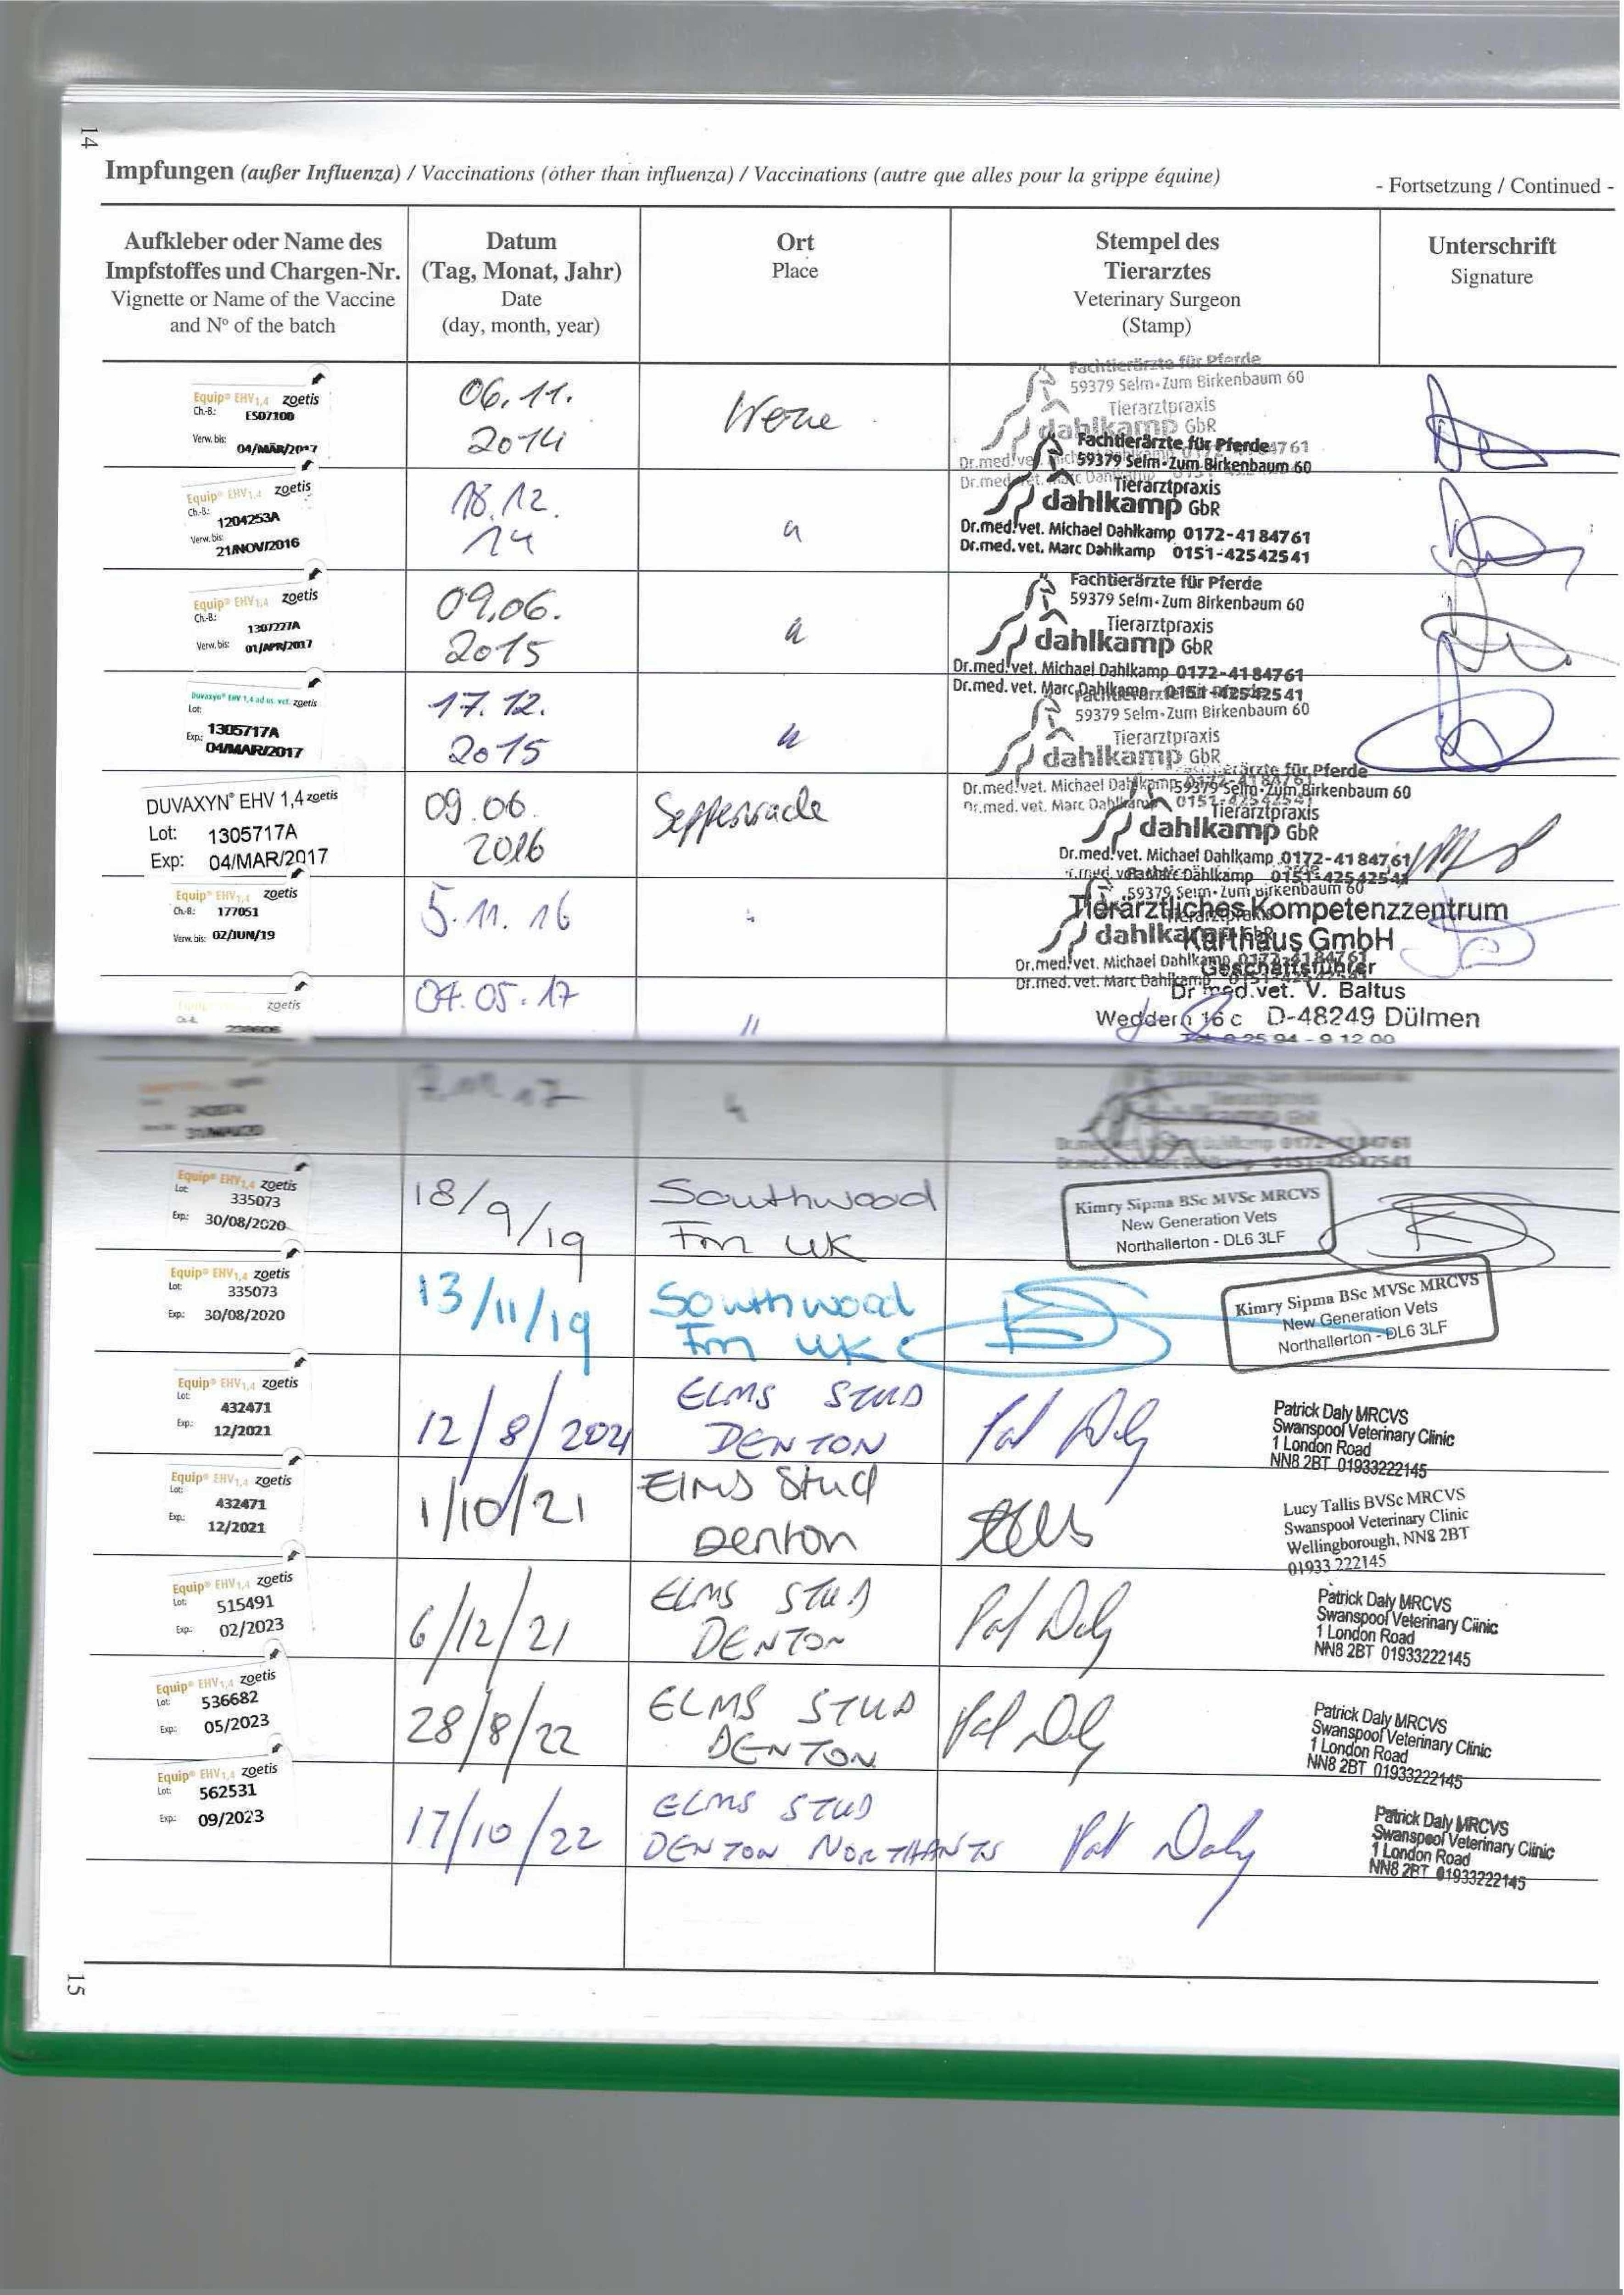 14
Impfungen (außer Influenza) / Vaccinations (other than influenza) / Vaccinations (autre que alles pour la grippe équine)
- Fortsetzung / Continued -
Aufkleber oder Name des
Impfstoffes und Chargen-Nr.
Vignette or Name of the Vaccine
and Nº of the batch
Datum
(Tag, Monat, Jahr)
Date
(day, month, year)
Ort
Place
Stempel des
Tierarztes
Veterinary Surgeon
(Stamp)
Unterschrift
Signature
Equip® EHV1,4 zoetis
Ch.-B.: ES07100
Verw. bis: 04/MÄR/2017
06.11.
2014
Fachtierärzte für Pferde
59379 Selm-Zum Birkenbaum 60
Tierarztpraxis
dahlkamp GbR
Equip® EHV1,4 zoetis
Ch.-B.:
1204253A
Verw. bis:
21/NOV/2016
18.12.
14
"
Fachtierärzte für Pferde
59379 Selm-Zum Birkenbaum 60
Tierarztpraxis
dahlkamp GbR
Dr.med.vet. Michael Dahlkamp 0172-4184761
Dr.med.vet. Marc Dahlkamp 0151-42542541
Equip® EHV1,4 zoetis
Ch.-B.:
1307227A
Verw. bis: 01/APR/2017
09.06.
2015
"
Fachtierärzte für Pferde
59379 Selm-Zum Birkenbaum 60
Tierarztpraxis
dahlkamp GbR
Dr.med.vet. Michael Dahlkamp 0172-4184761
Dr.med.vet. Marc Dahlkamp 0151-42542541
Duvaxyn® EHV 1,4 ad us. vet. zoetis
Lot:
1305717A
Exp.: 04/MAR/2017
17.12.
2015
"
59379 Selm-Zum Birkenbaum 60
Tierarztpraxis
dahlkamp GbR
Dr.med.vet. Michael Dahlkamp
Dr.med.vet. Marc Dahlkamp
DUVAXYN® EHV 1,4 zoetis
Lot: 1305717A
Exp: 04/MAR/2017
09.06
2016
Seppenrade
Fachtierärzte für Pferde
59379 Selm-Zum Birkenbaum 60
Tierarztpraxis
dahlkamp GbR
Dr.med.vet. Michael Dahlkamp 0172-4184761
Dahlkamp 0151-42542541
Equip® EHV1,4 zoetis
Ch.-B.: 177051
Verw. bis: 02/JUN/19
5.11.16
"
59379 Selm-Zum Birkenbaum 60
dahlkamp
Dr.med.vet. Michael Dahlkamp 0172-4184761
Dr.med.vet. Marc Dahlkamp
zoetis
04.05.17
"
Tierärztliches Kompetenzzentrum
Karthaus GmbH
Geschäftsführer
Dr med.vet. V. Baltus
Weddern 16 c D-48249 Dülmen
Equip® EHV1,4 zoetis
Lot: 335073
Exp: 30/08/2020
18/9/19
Southwood
Fm UK
Kimry Sipma BSc MVSc MRCVS
New Generation Vets
Northallerton - DL6 3LF
Equip® EHV1,4 zoetis
Lot: 335073
Exp: 30/08/2020
13/11/19
Southwood
Fm UK
Kimry Sipma BSc MVSc MRCVS
New Generation Vets
Northallerton - DL6 3LF
Equip® EHV1,4 zoetis
Lot:
432471
Exp.: 12/2021
12/8/2021
ELMS STUD
DENTON
Pat Daly
Patrick Daly MRCVS
Swanspool Veterinary Clinic
1 London Road
NN8 2BT 01933222145
Equip® EHV1,4 zoetis
Lot:
432471
Exp.: 12/2021
1/10/21
Elms Stud
Denton
Lucy Tallis BVSc MRCVS
Swanspool Veterinary Clinic
Wellingborough, NN8 2BT
01933 222145
Equip® EHV1,4 zoetis
Lot: 515491
Exp.: 02/2023
6/12/21
ELMS STUD
DENTON
Pat Daly
Patrick Daly MRCVS
Swanspool Veterinary Clinic
1 London Road
NN8 2BT 01933222145
Equip® EHV1,4 zoetis
Lot: 536682
Exp.: 05/2023
28/8/22
ELMS STUD
DENTON
Pat Daly
Patrick Daly MRCVS
Swanspool Veterinary Clinic
1 London Road
NN8 2BT 01933222145
Equip® EHV1,4 zoetis
Lot: 562531
Exp.: 09/2023
17/10/22
ELMS STUD
DENTON NORTHANTS
Pat Daly
Patrick Daly MRCVS
Swanspool Veterinary Clinic
1 London Road
NN8 2BT 01933222145
15